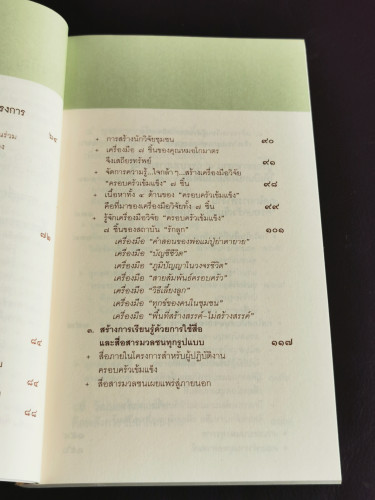 รงการ
นร่วม
๘๒
๘๔
๘๔
๘๘
+ การสร้างนักวิจัยชุมชน ๙๐
+ เครื่องมือ ๗ ชิ้นของคุณหมอโกมาตร
จึงเสถียรทรัพย์ ๙๑
+ จัดการความรู้...ใจกล้าๆ...สร้างเครื่องมือวิจัย
“ครอบครัวเข้มแข็ง” ๗ ชิ้น ๙๘
+ เนื้อหาทั้ง ๔ ด้านของ “ครอบครัวเข้มแข็ง”
คือที่มาของเครื่องมือวิจัยทั้ง ๗ ชิ้น ๙๙
+ รู้จักเครื่องมือวิจัย “ครอบครัวเข้มแข็ง”
๗ ชิ้นของสถาบัน “รักลูก” ๑๐๑
เครื่องมือ “คำสอนของพ่อแม่ปู่ย่าตายาย”
เครื่องมือ “บัญชีชีวิต”
เครื่องมือ “ภูมิปัญญาในวงจรชีวิต”
เครื่องมือ “สายสัมพันธ์ครอบครัว”
เครื่องมือ “วิธีเลี้ยงลูก”
เครื่องมือ “ทุกข์ของคนในชุมชน”
เครื่องมือ “พื้นที่สร้างสรรค์-ไม่สร้างสรรค์”
๓. สร้างการเรียนรู้ด้วยการใช้สื่อ
และสื่อสารมวลชนทุกรูปแบบ ๑๑๗
+ สื่อภายในโครงการสำหรับผู้ปฏิบัติงาน
ครอบครัวเข้มแข็ง
+ สื่อสารมวลชนเผยแพร่สู่ภายนอก